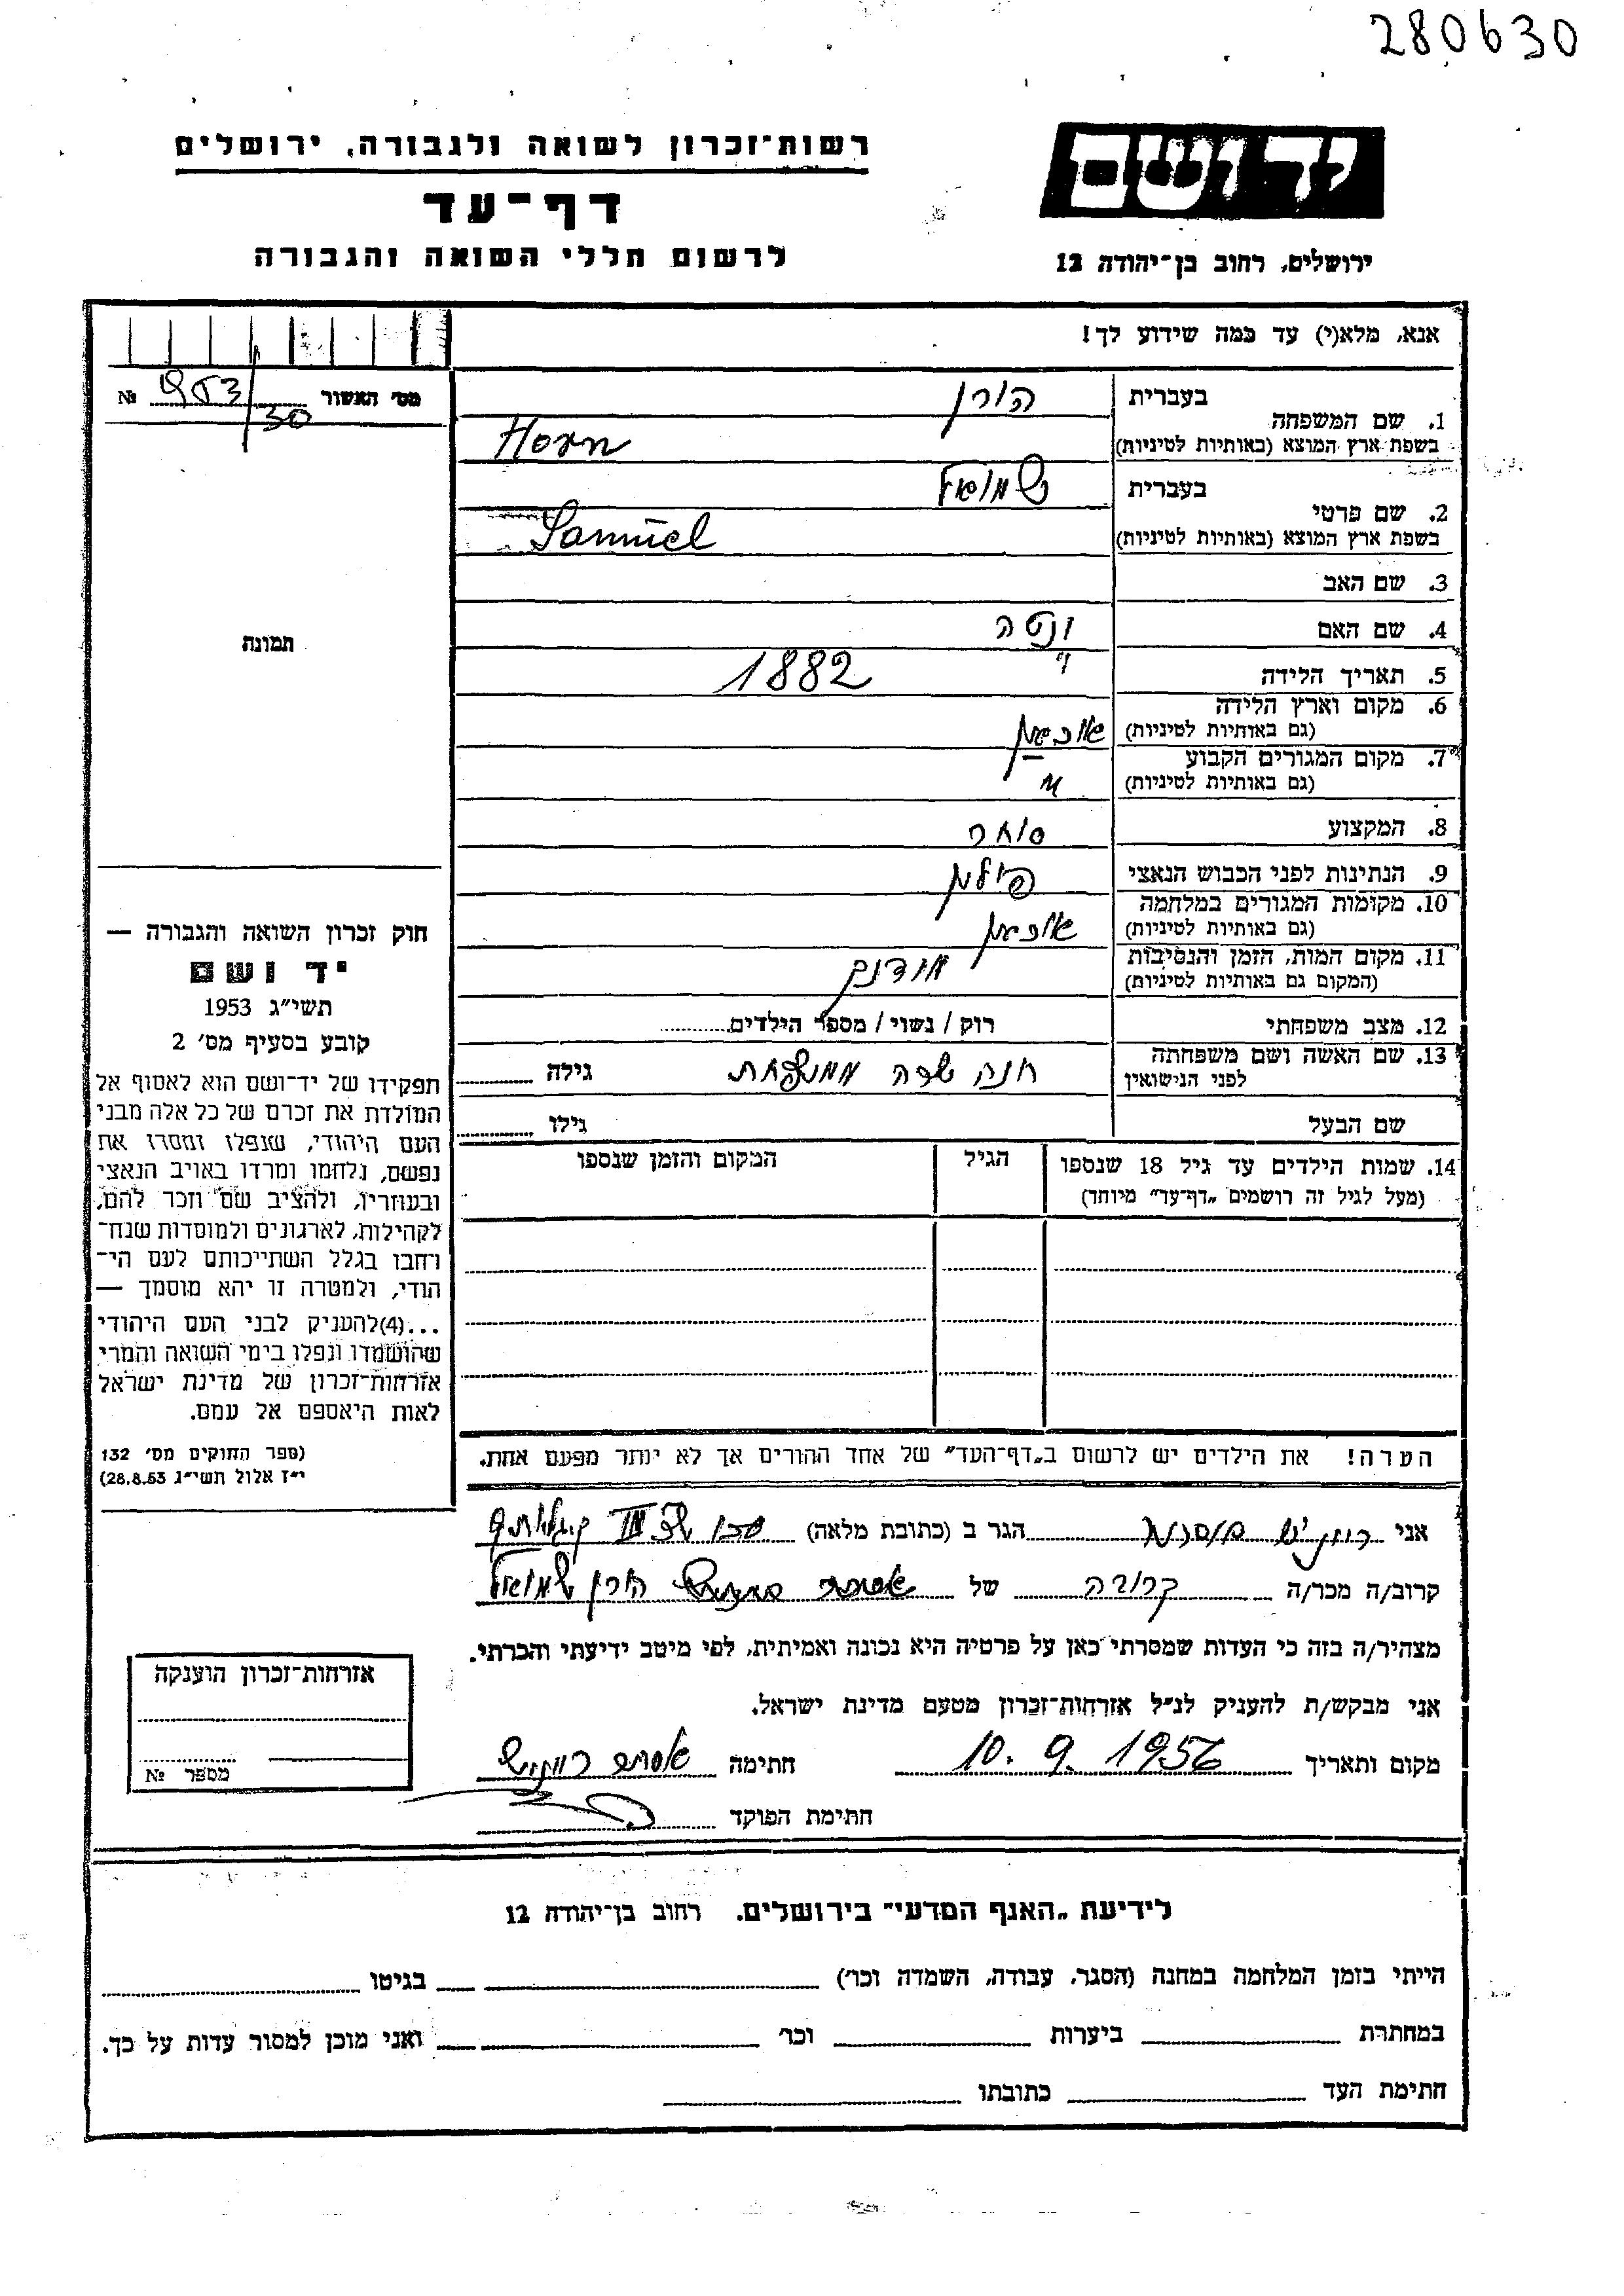 280630
רשות־זכרון לשואה ולגבורה, ירושלים
דף־עד
לרשום חללי השואה והגבורה
יד ושם
ירושלים, רחוב בן־יהודה 12
אנא, מלא(י) עד כמה שידוע לך!
מס׳ האשור 953/30 №
תמונה
1. שם המשפחה
בעברית הורן
בשפת ארץ המוצא (באותיות לטיניות) Horn
2. שם פרטי
בעברית שמואל
בשפת ארץ המוצא (באותיות לטיניות) Samuel
3. שם האב
4. שם האם
5. תאריך הלידה 1882
6. מקום וארץ הלידה
(גם באותיות לטיניות)
7. מקום המגורים הקבוע
(גם באותיות לטיניות) "
8. המקצוע סוחר
9. הנתינות לפני הכבוש הנאצי פולין
10. מקומות המגורים במלחמה
(גם באותיות לטיניות)
11. מקום המות, הזמן והנסיבות
(המקום גם באותיות לטיניות)
12. מצב משפחתי רוק / נשוי / מספר הילדים
13. שם האשה ושם משפחתה
לפני הנישואין חנה שרה ממשפחת גילה
שם הבעל גילו
14. שמות הילדים עד גיל 18 שנספו
(מעל לגיל זה רושמים „דף־עד״ מיוחד)
הגיל
המקום והזמן שנספו
הערה! את הילדים יש לרשום ב„דף־העד״ של אחד ההורים אך לא יותר מפעם אחת.
חוק זכרון השואה והגבורה —
יד ושם
תשי״ג 1953
קובע בסעיף מס׳ 2
תפקידו של יד־ושם הוא לאסוף אל
המולדת את זכרם של כל אלה מבני
העם היהודי, שנפלו ומסרו את
נפשם, נלחמו ומרדו באויב הנאצי
ובעוזריו, ולהציב שם וזכר להם,
לקהילות, לארגונים ולמוסדות שנח־
רחבו בגלל השתייכותם לעם הי־
הודי, ולמטרה זו יהא מוסמך —
...(4)להעניק לבני העם היהודי
שהושמדו ונפלו בימי השואה והמרי
אזרחות־זכרון של מדינת ישראל
לאות היאספם אל עמם.
(ספר החוקים מס׳ 132
י״ז אלול תשי״ג 28.8.53)
אני הגר ב (כתובת מלאה)
קרוב/ה מכר/ה קרובה של הורן שמואל
מצהיר/ה בזה כי העדות שמסרתי כאן על פרטיה היא נכונה ואמיתית, לפי מיטב ידיעתי והכרתי.
אני מבקש/ת להעניק לנ״ל אזרחות־זכרון מטעם מדינת ישראל.
מקום ותאריך 10. 9. 1956 חתימה אסתר
חתימת הפוקד
אזרחות־זכרון הוענקה
מספר №
לידיעת „האגף המדעי״ בירושלים. רחוב בן־יהודה 12
הייתי בזמן המלחמה במחנה (הסגר, עבודה, השמדה וכו׳) בגיטו
במחתרת ביערות וכו׳ ואני מוכן למסור עדות על כך.
חתימת העד כתובתו